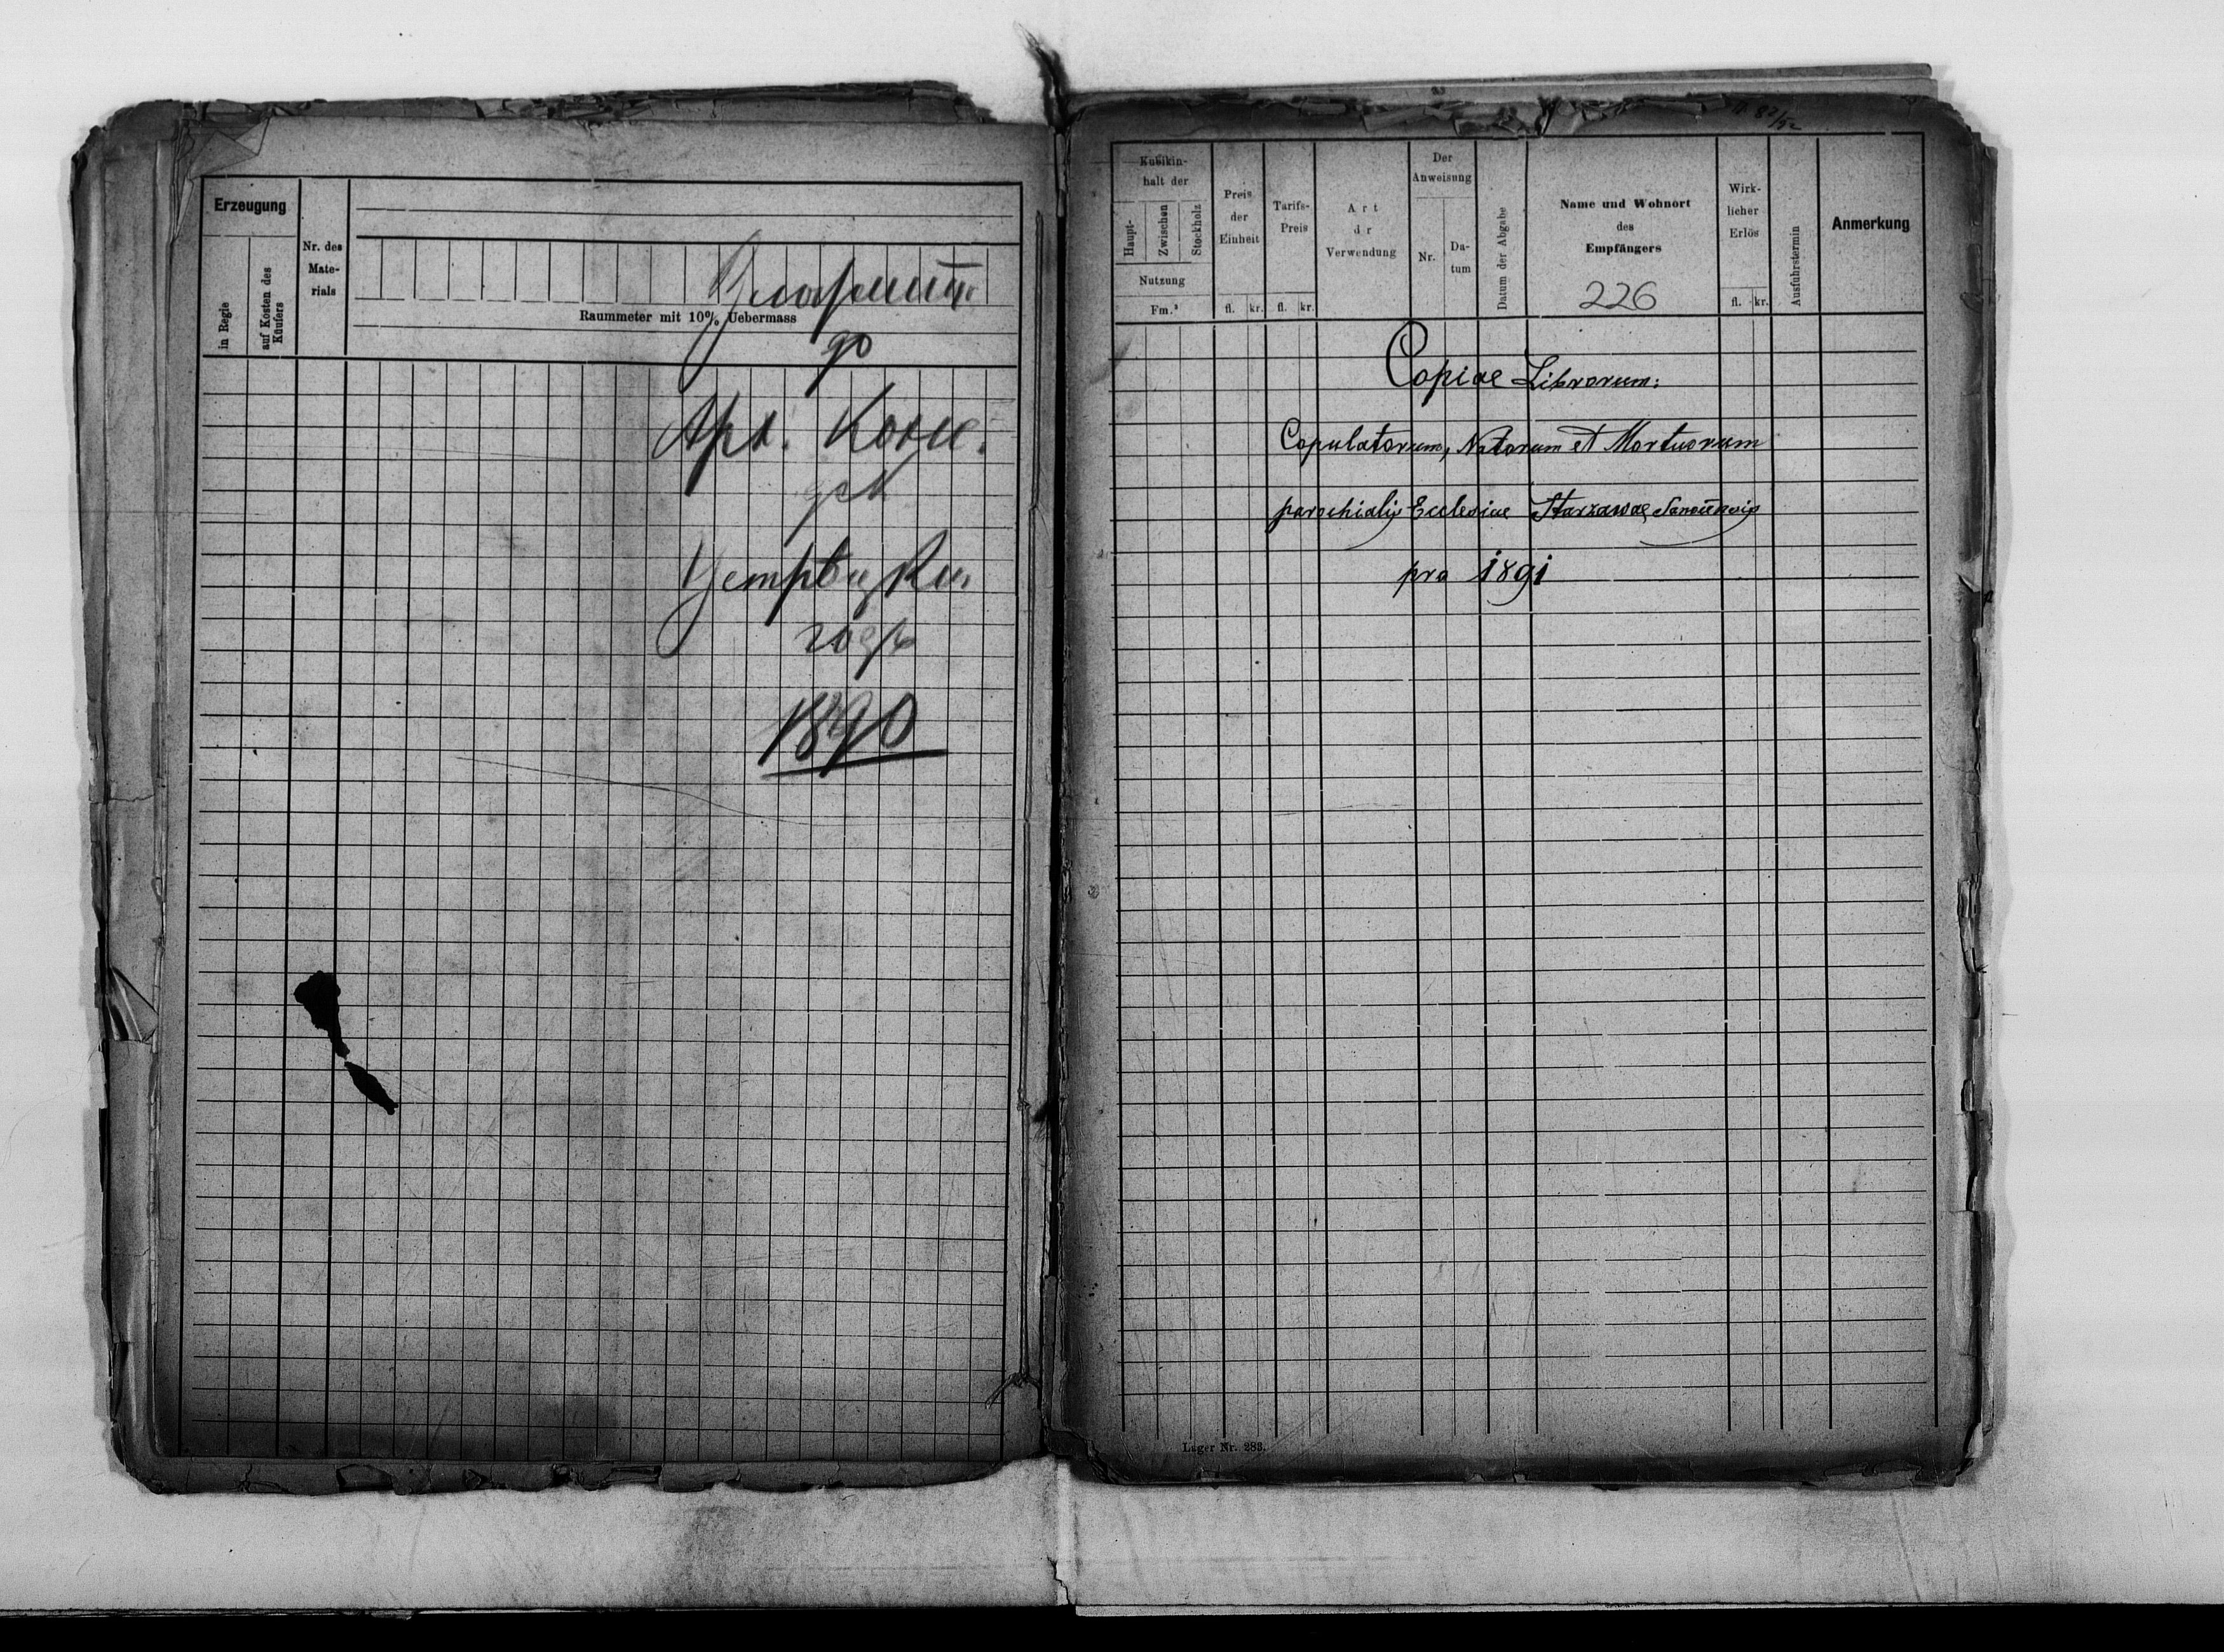 Erzeugung
in Regie
auf Kosten des
Käufers
Nr. des
Mate-
rials
Raummeter mit 10% Uebermass
до
Арх. Конс.
для
1890
82/52
Kubikin-
halt der
Haupt-
Zwischen
Stockholz
Nutzung
Fm.³
Preis
der
Einheit
fl. kr.
Tarifs-
Preis
fl. kr.
Art
d r
Verwendung
Der
Anweisung
Nr.
Da-
tum
Datum der Abgabe
Name und Wohnort
des
Empfängers
226
Wirk-
licher
Erlös
fl. kr.
Ausfuhrstermin
Anmerkung
Copiae Librorum:
Copulatorum, Natorum et Mortuorum
parochialis Ecclesiae Starzawae
pro 1891
Lager Nr. 283.